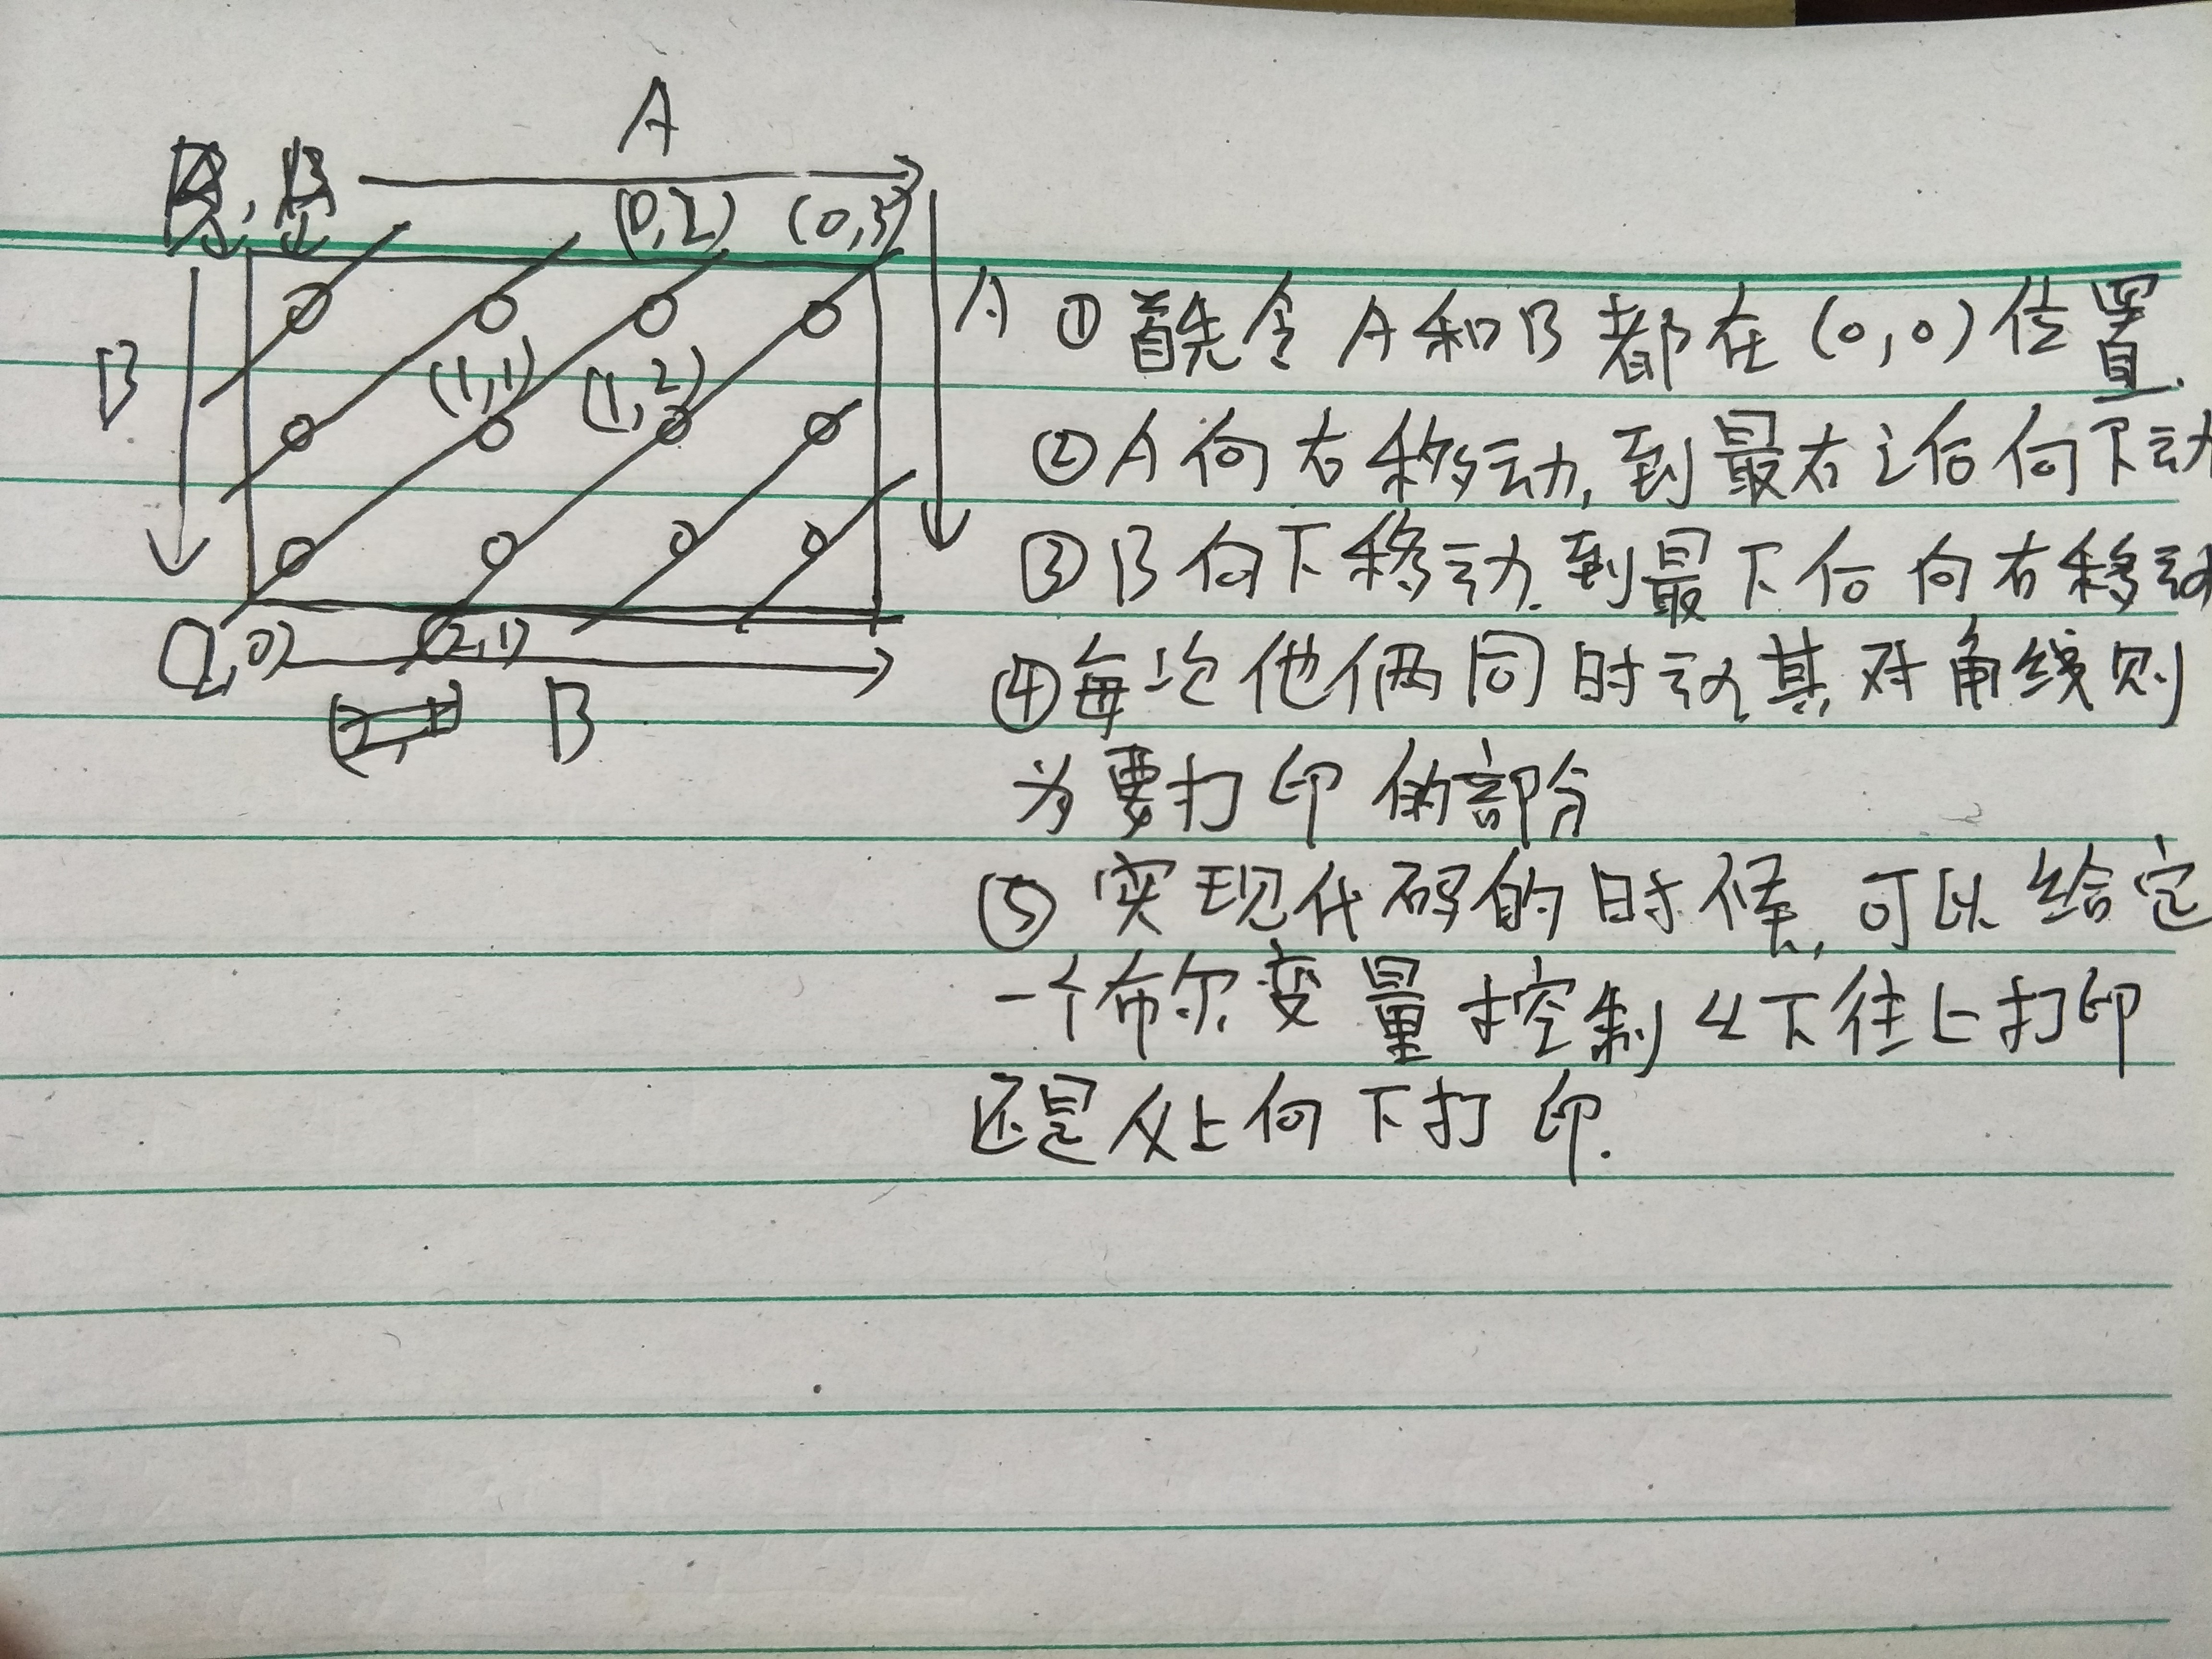 A
(0,2) (0,3)
B
A
(1,1) (1,2)
(2,0) (2,1)
B
①首先令A和B都在(0,0)位置.
②A向右移动,到最右之后向下动
③B向下移动.到最下后向右移动
④每次他俩同时动其对角线则
为要打印的部分
⑤实现代码的时候,可以给定
一个布尔变量控制从下往上打印
还是从上向下打印.